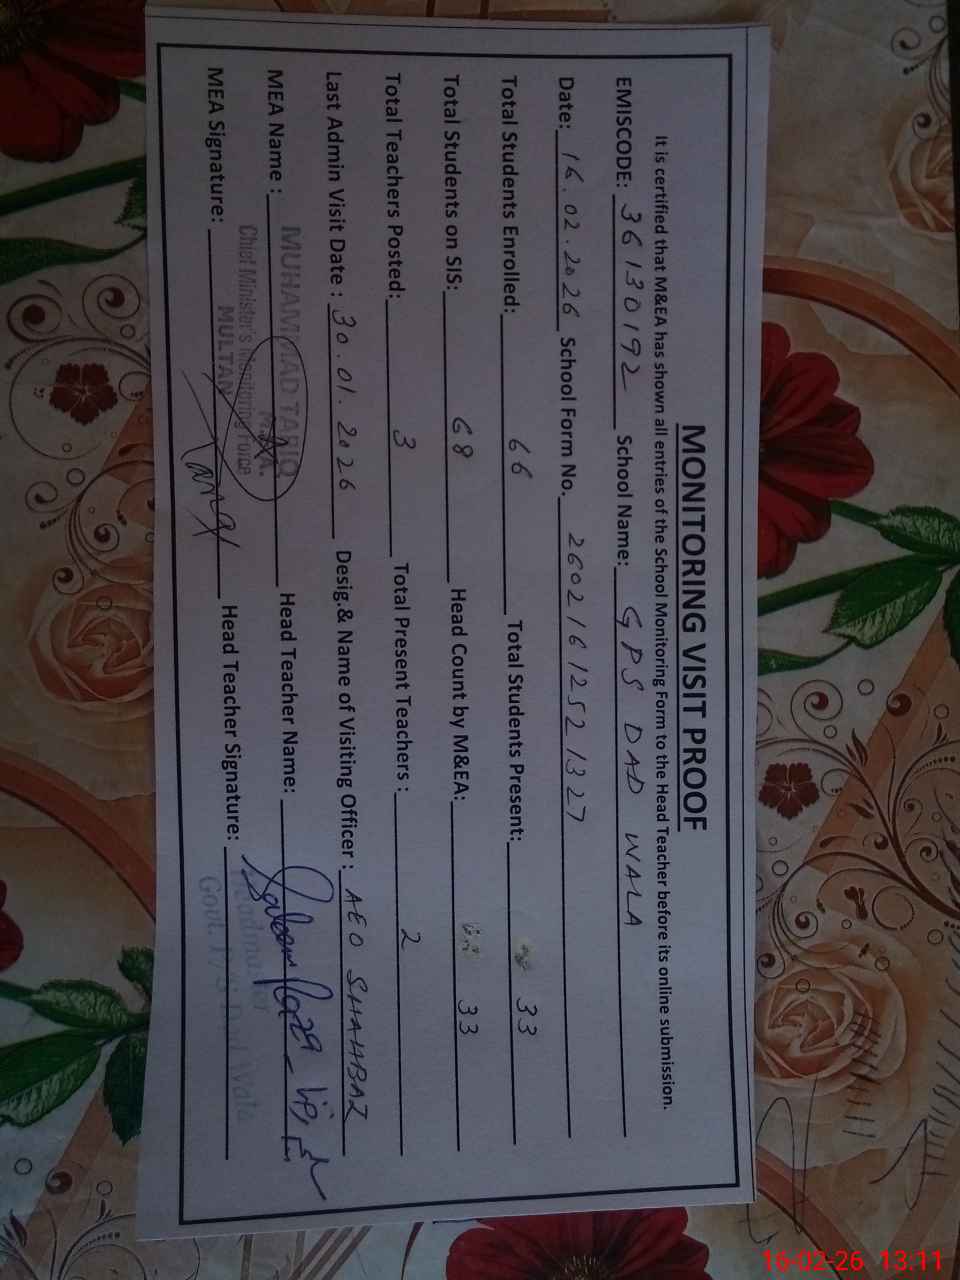 MONITORING VISIT PROOF
It is certified that M&EA has shown all entries of the School Monitoring Form to the Head Teacher before its online submission.
EMISCODE: 36130192 School Name: GPS DAD WALA
Date: 16.02.2026 School Form No. 26021612521327
Total Students Enrolled: 66 Total Students Present: 33
Total Students on SIS: 68 Head Count by M&EA: 33
Total Teachers Posted: 3 Total Present Teachers : 2
Last Admin Visit Date : 30.01.2026 Desig.& Name of Visiting Officer : AEO SHAHBAZ
MEA Name : MUHAMMAD TARIQ Head Teacher Name:
Chief Minister's Monitoring Force
MULTAN
MEA Signature: Tariq Head Teacher Signature:
Headmaster
Govt. P/S Dad Wala
16-02-26 13:11